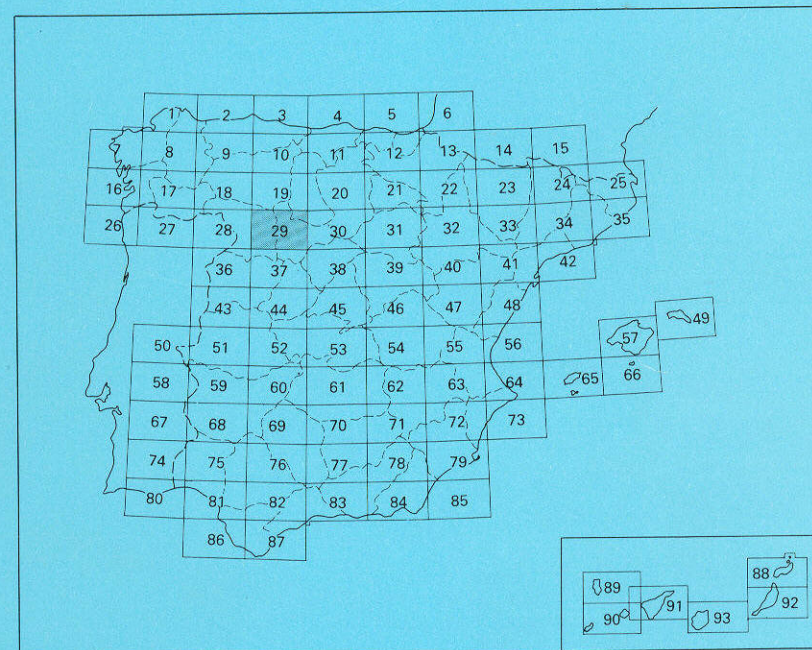 1 2 3 4 5 6
8 9 10 11 12 13 14 15
16 17 18 19 20 21 22 23 24 25
26 27 28 29 30 31 32 33 34 35
36 37 38 39 40 41 42
43 44 45 46 47 48 49
50 51 52 53 54 55 56 57
58 59 60 61 62 63 64 65 66
67 68 69 70 71 72 73
74 75 76 77 78 79
80 81 82 83 84 85
86 87
88
89
90 91 93 92